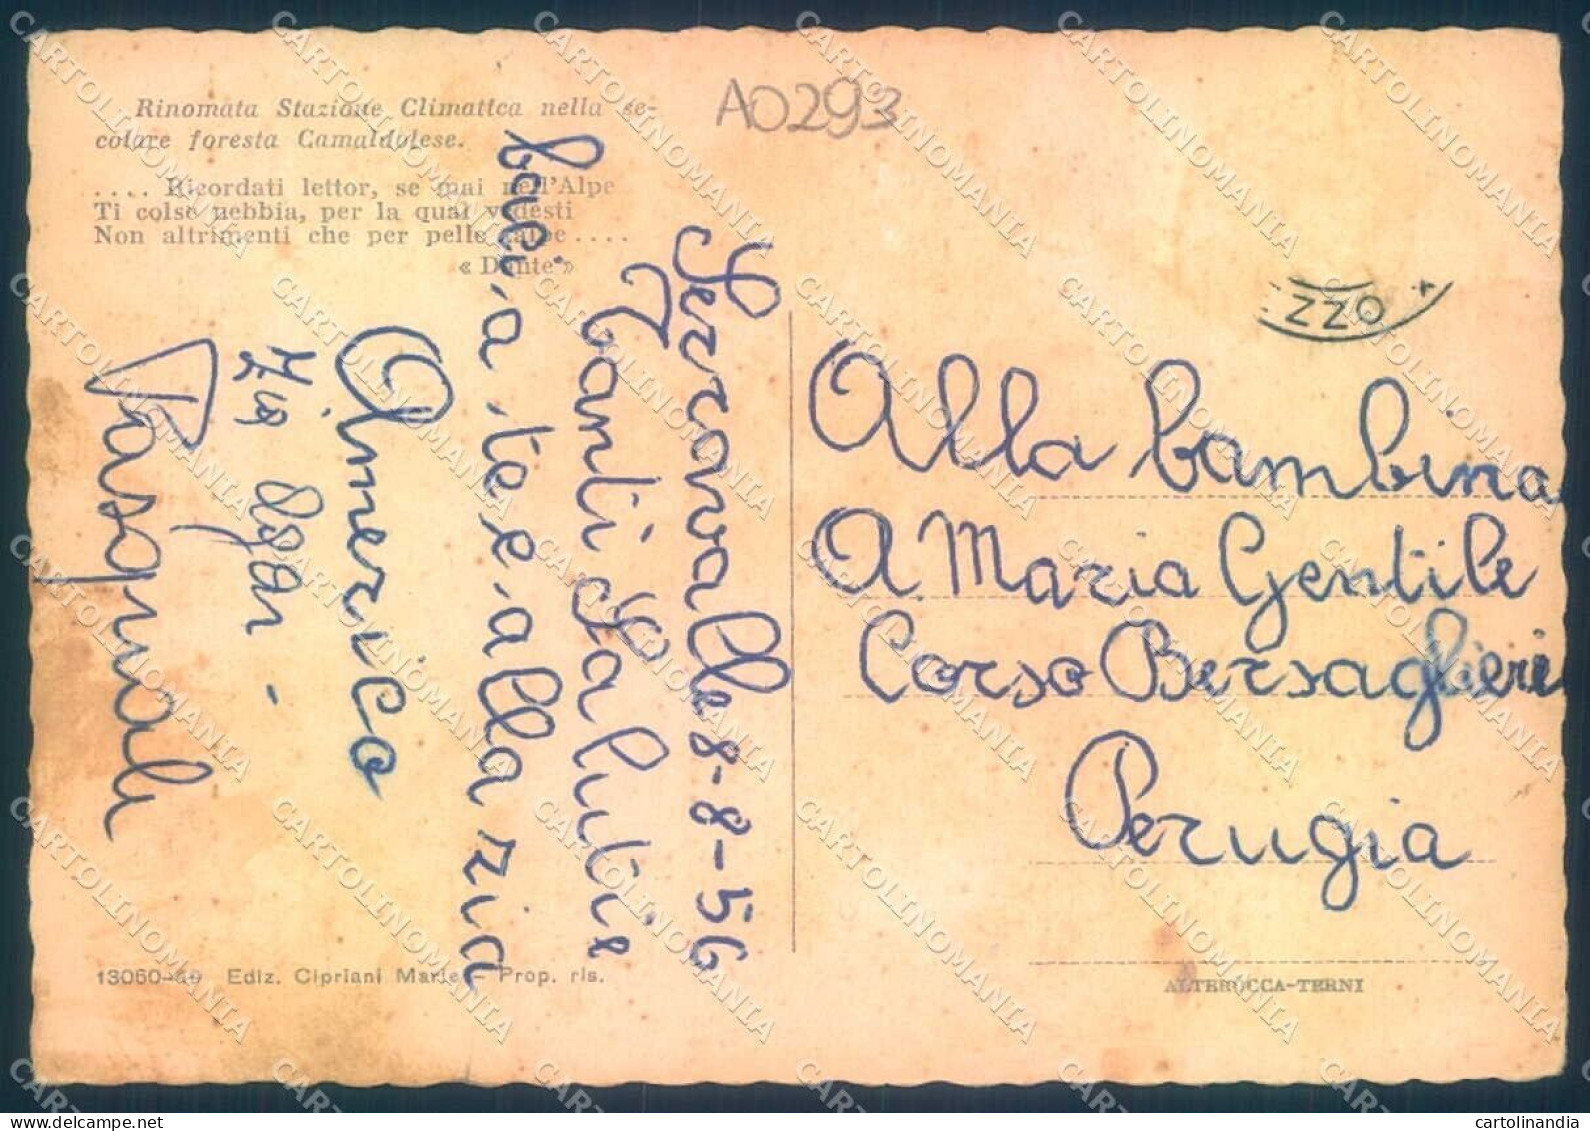 A0293
Rinomata Stazione Climatica nella se-
colare foresta Camaldolese.
.... Ricordati lettor, se mai nell'Alpe
Ti colse nebbia, per la qual vedesti
Non altrimenti che per pelle talpe ....
« Dante »
Serravalle 8-8-56
Tanti Saluti e
baci a te e alla zia
Americo
Zia
Pasquale
ZZO
Alla bambina
A. Maria Gentile
Corso Bersaglieri
Perugia
13060-49 Ediz. Cipriani Marie - Prop. ris.
ALTEROCCA-TERNI
CARTOLINOMANIA
cartolinandia